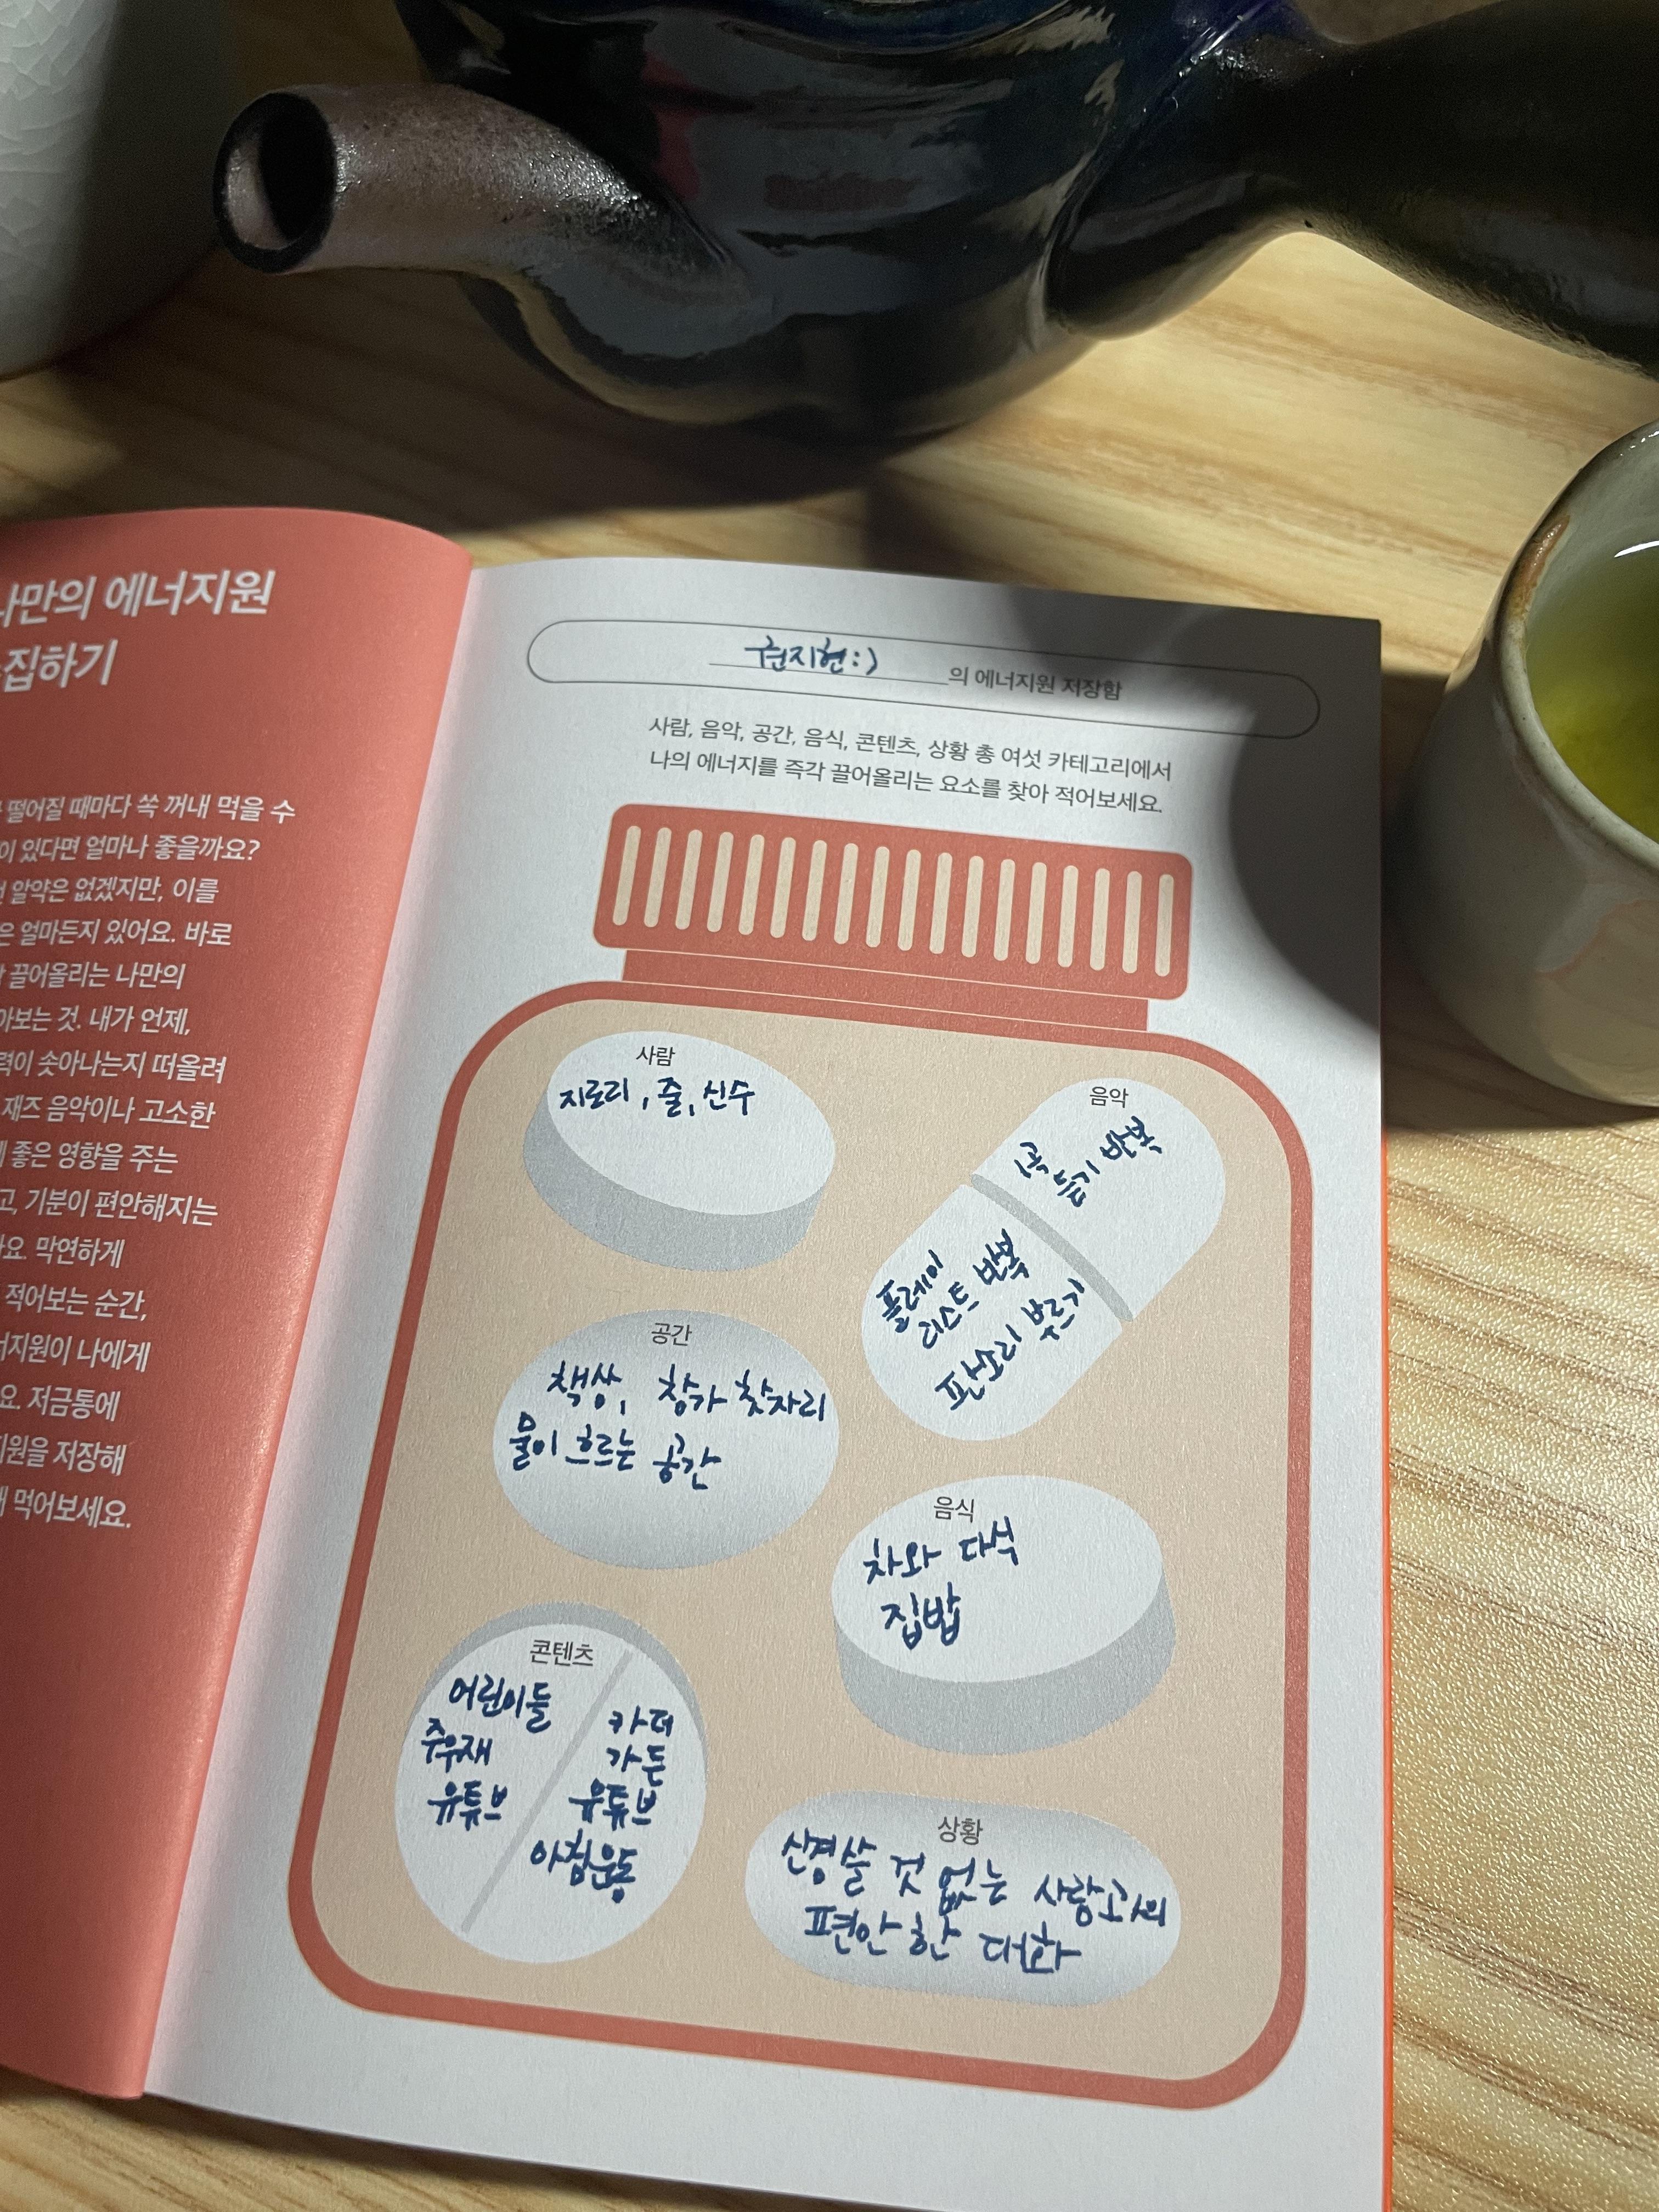 나만의 에너지원
집하기
떨어질 때마다 쏙 꺼내 먹을 수
이 있다면 얼마나 좋을까요?
알약은 없겠지만, 이를
은 얼마든지 있어요. 바로
끌어올리는 나만의
아보는 것. 내가 언제,
력이 솟아나는지 떠올려
재즈 음악이나 고소한
좋은 영향을 주는
고, 기분이 편안해지는
요. 막연하게
적어보는 순간,
너지원이 나에게
요. 저금통에
지원을 저장해
먹어보세요.
권지현:) 의 에너지원 저장함
사람, 음악, 공간, 음식, 콘텐츠, 상황 총 여섯 카테고리에서
나의 에너지를 즉각 끌어올리는 요소를 찾아 적어보세요.
사람
지로리, 줄, 신수
음악
1곡 듣기 반복
플레이
리스트 반복
판소리 부르기
공간
책상, 창가 찻자리
물이 흐르는 공간
음식
차와 다식
집밥
콘텐츠
어린이들
주우재
유튜브
카더
가든
유튜브
아침운동
상황
신경쓸 것 없는 사람과의
편안한 대화